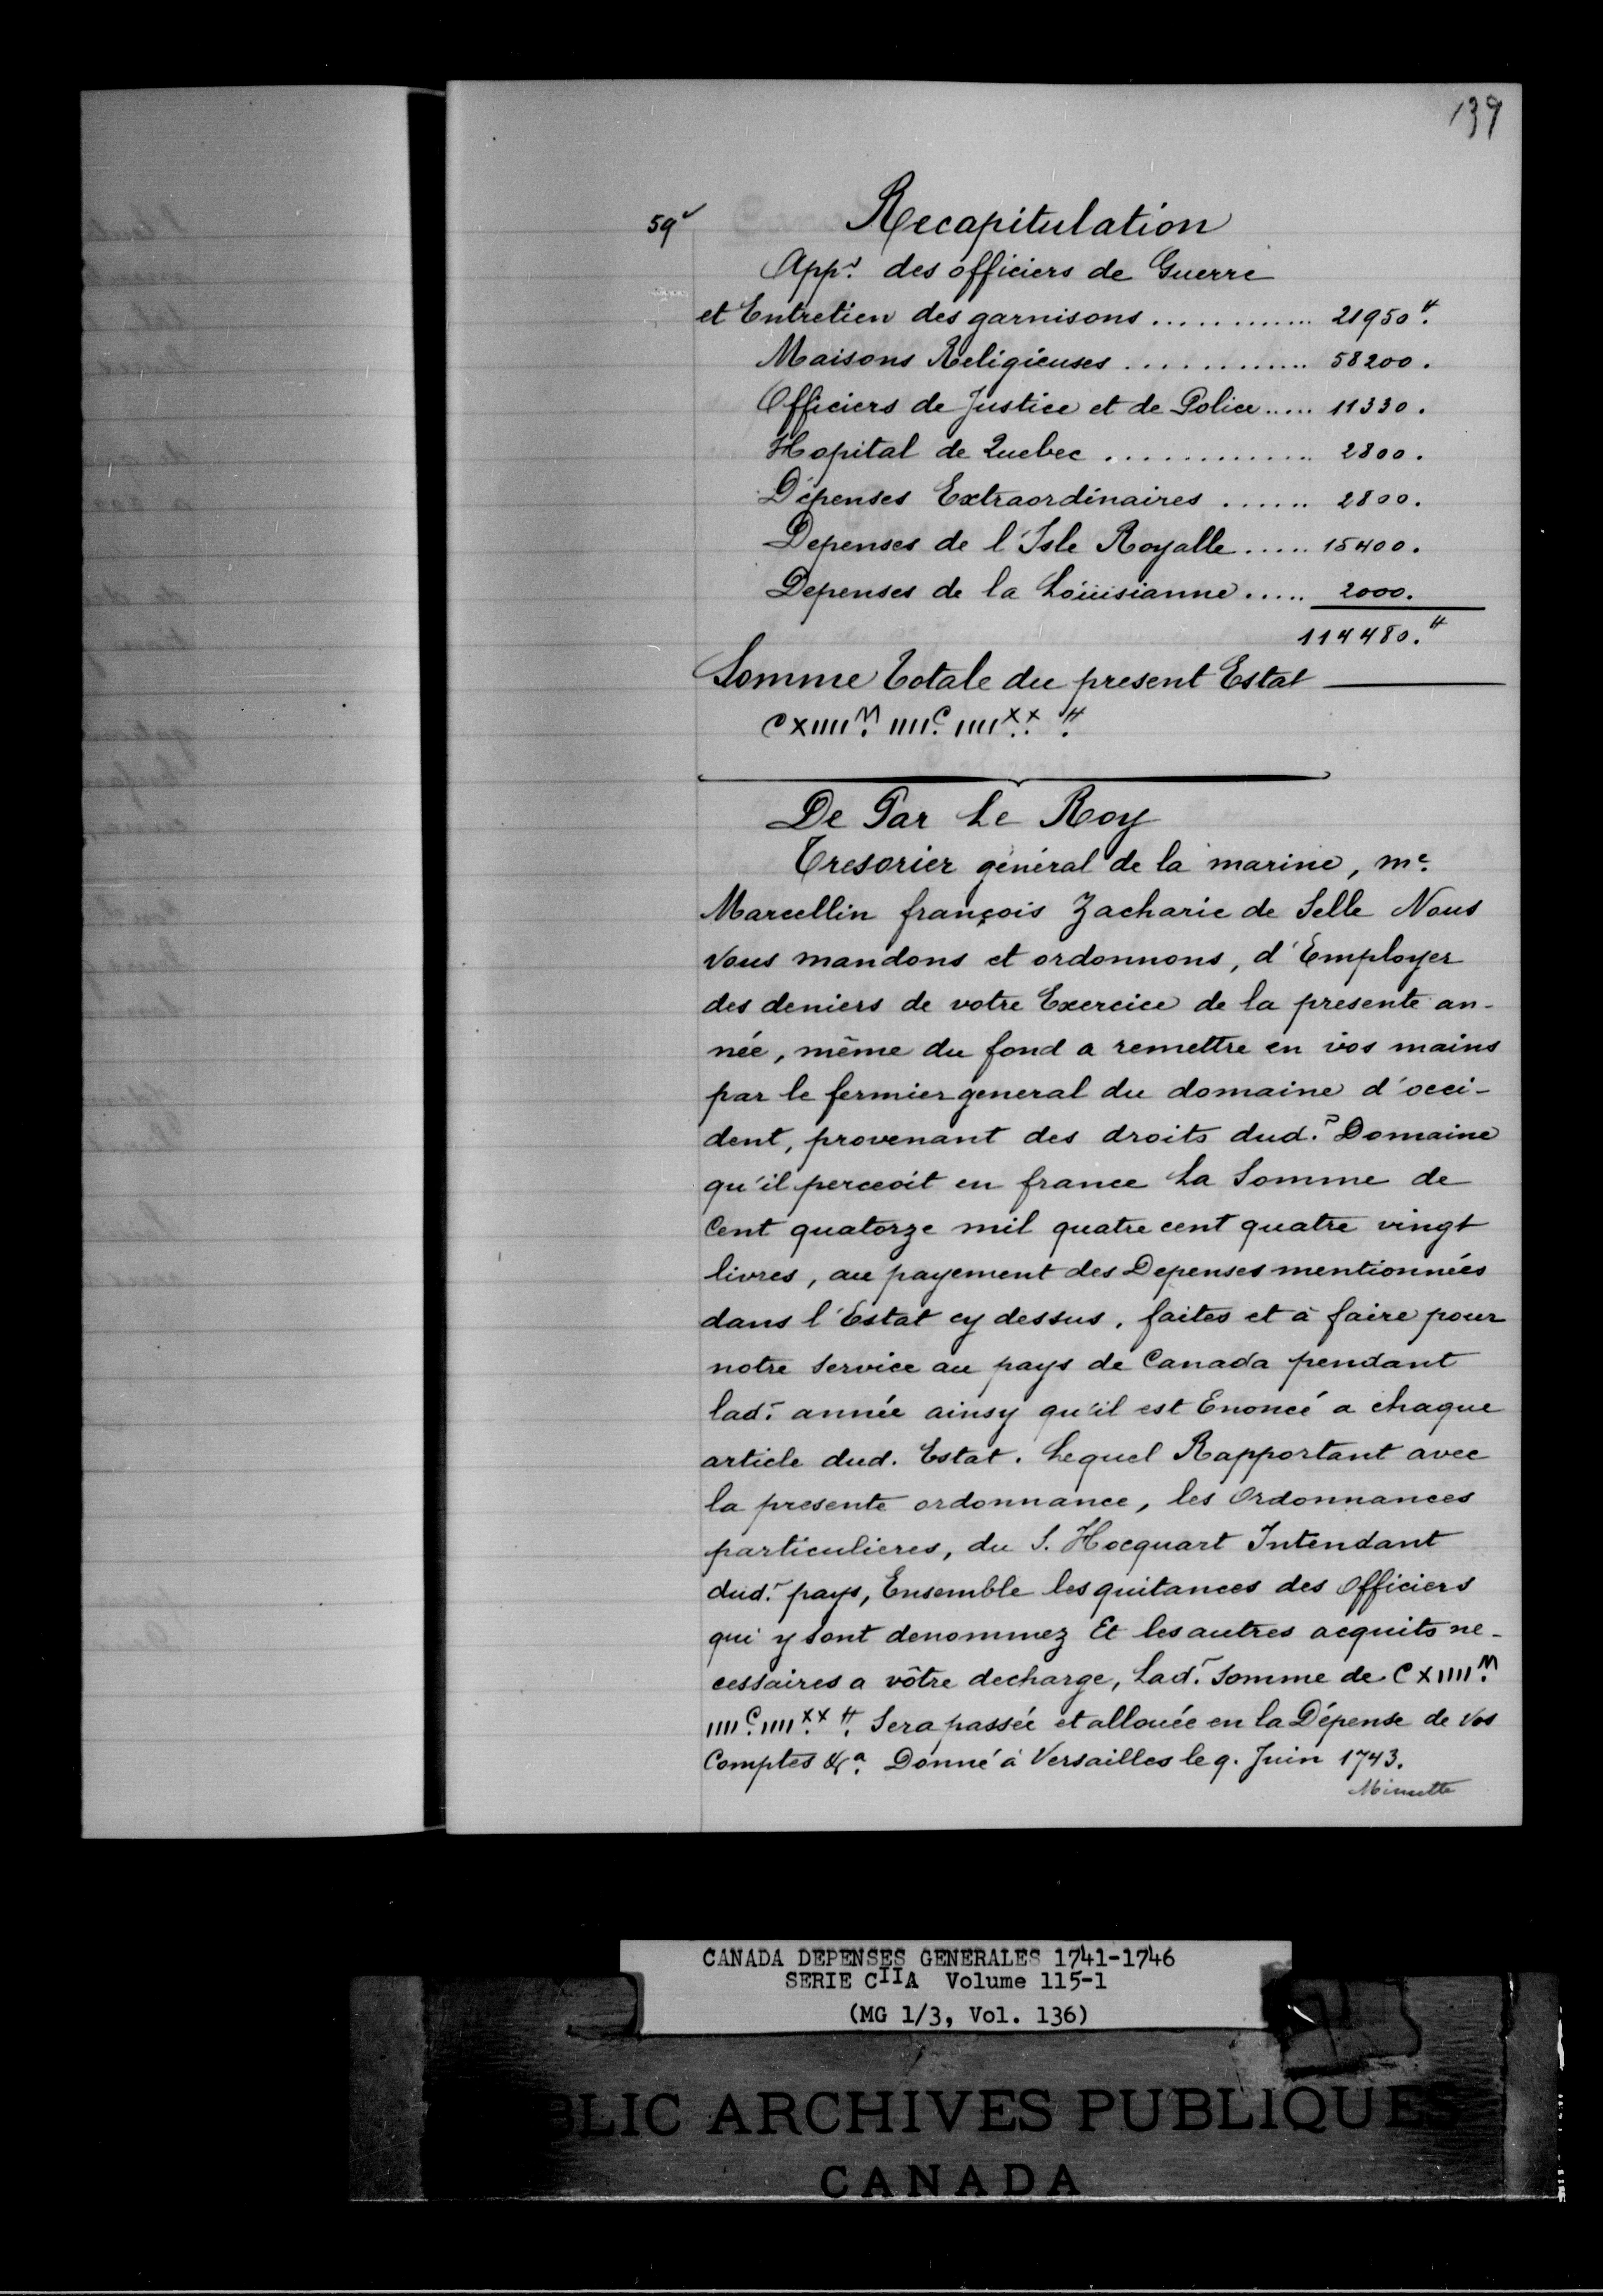 139
59v
Recapitulation
App.ˢ des officiers de Guerre
et Entretien des garnisons ............. 21950.ᴴ
Maisons Religieuses ............. 58200.
Officiers de Justice et de Police ..... 11330.
Hopital de Quebec ............... 2800.
Dépenses Extraordinaires ....... 2800.
Depenses de l'Isle Royalle ..... 15400.
Depenses de la Loüisianne ..... 2000.
114480.ᴴ
Somme Totale du present Estat
CXIIIIᴹ. IIIIᶜ. IIIIˣˣ. ᴴ.
De Par Le Roy
Tresorier général de la marine, mᵉ.
Marcellin françois Zacharie de Selle Nous
vous mandons et ordonnons, d'Employer
des deniers de votre Exercice de la presente an-
née, même du fond a remettre en vos mains
par le fermier general du domaine d'occi-
dent, provenant des droits dud.ᵗ Domaine
qu'il percoit en france La Somme de
Cent quatorze mil quatre cent quatre vingt
livres, au payement des Depenses mentionnées
dans l'Estat cy dessus, faites et à faire pour
notre service au pays de Canada pendant
lad.ᵗ année ainsy qu'il est Enoncé a chaque
article dud. Estat. Lequel Rapportant avec
la presente ordonnance, les Ordonnances
particulieres, du S. Hocquart Intendant
dud.ᵗ pays, Ensemble les quitances des Officiers
qui y sont denommez Et les autres acquits ne-
cessaires a vôtre decharge, Lad.ᵗ Somme de CXIIIIᴹ.
IIIIᶜ. IIIIˣˣ. ᴴ. Sera passée et allouée en la Dépense de vos
Comptes &ᵃ. Donné à Versailles le 9. Juin 1743.
Minutte
CANADA DEPENSES GENERALES 1741-1746
SERIE CIIA Volume 115-1
(MG 1/3, Vol. 136)
BLIC ARCHIVES PUBLIQUES
CANADA